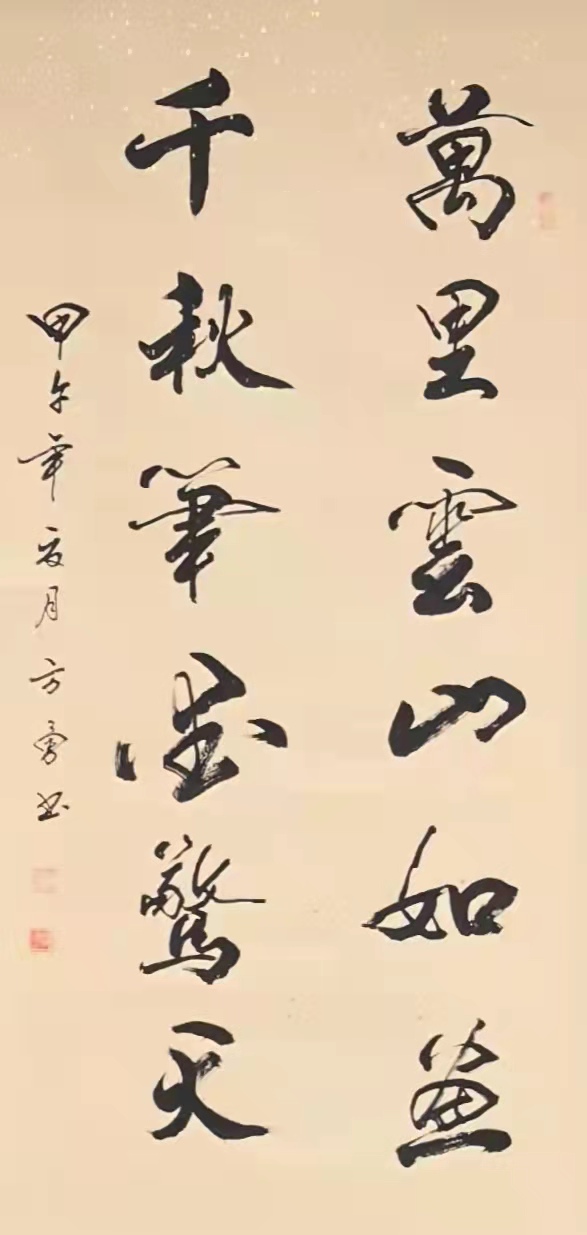 萬里雲山如畫
千秋筆墨驚天
甲午年夏月方勇书